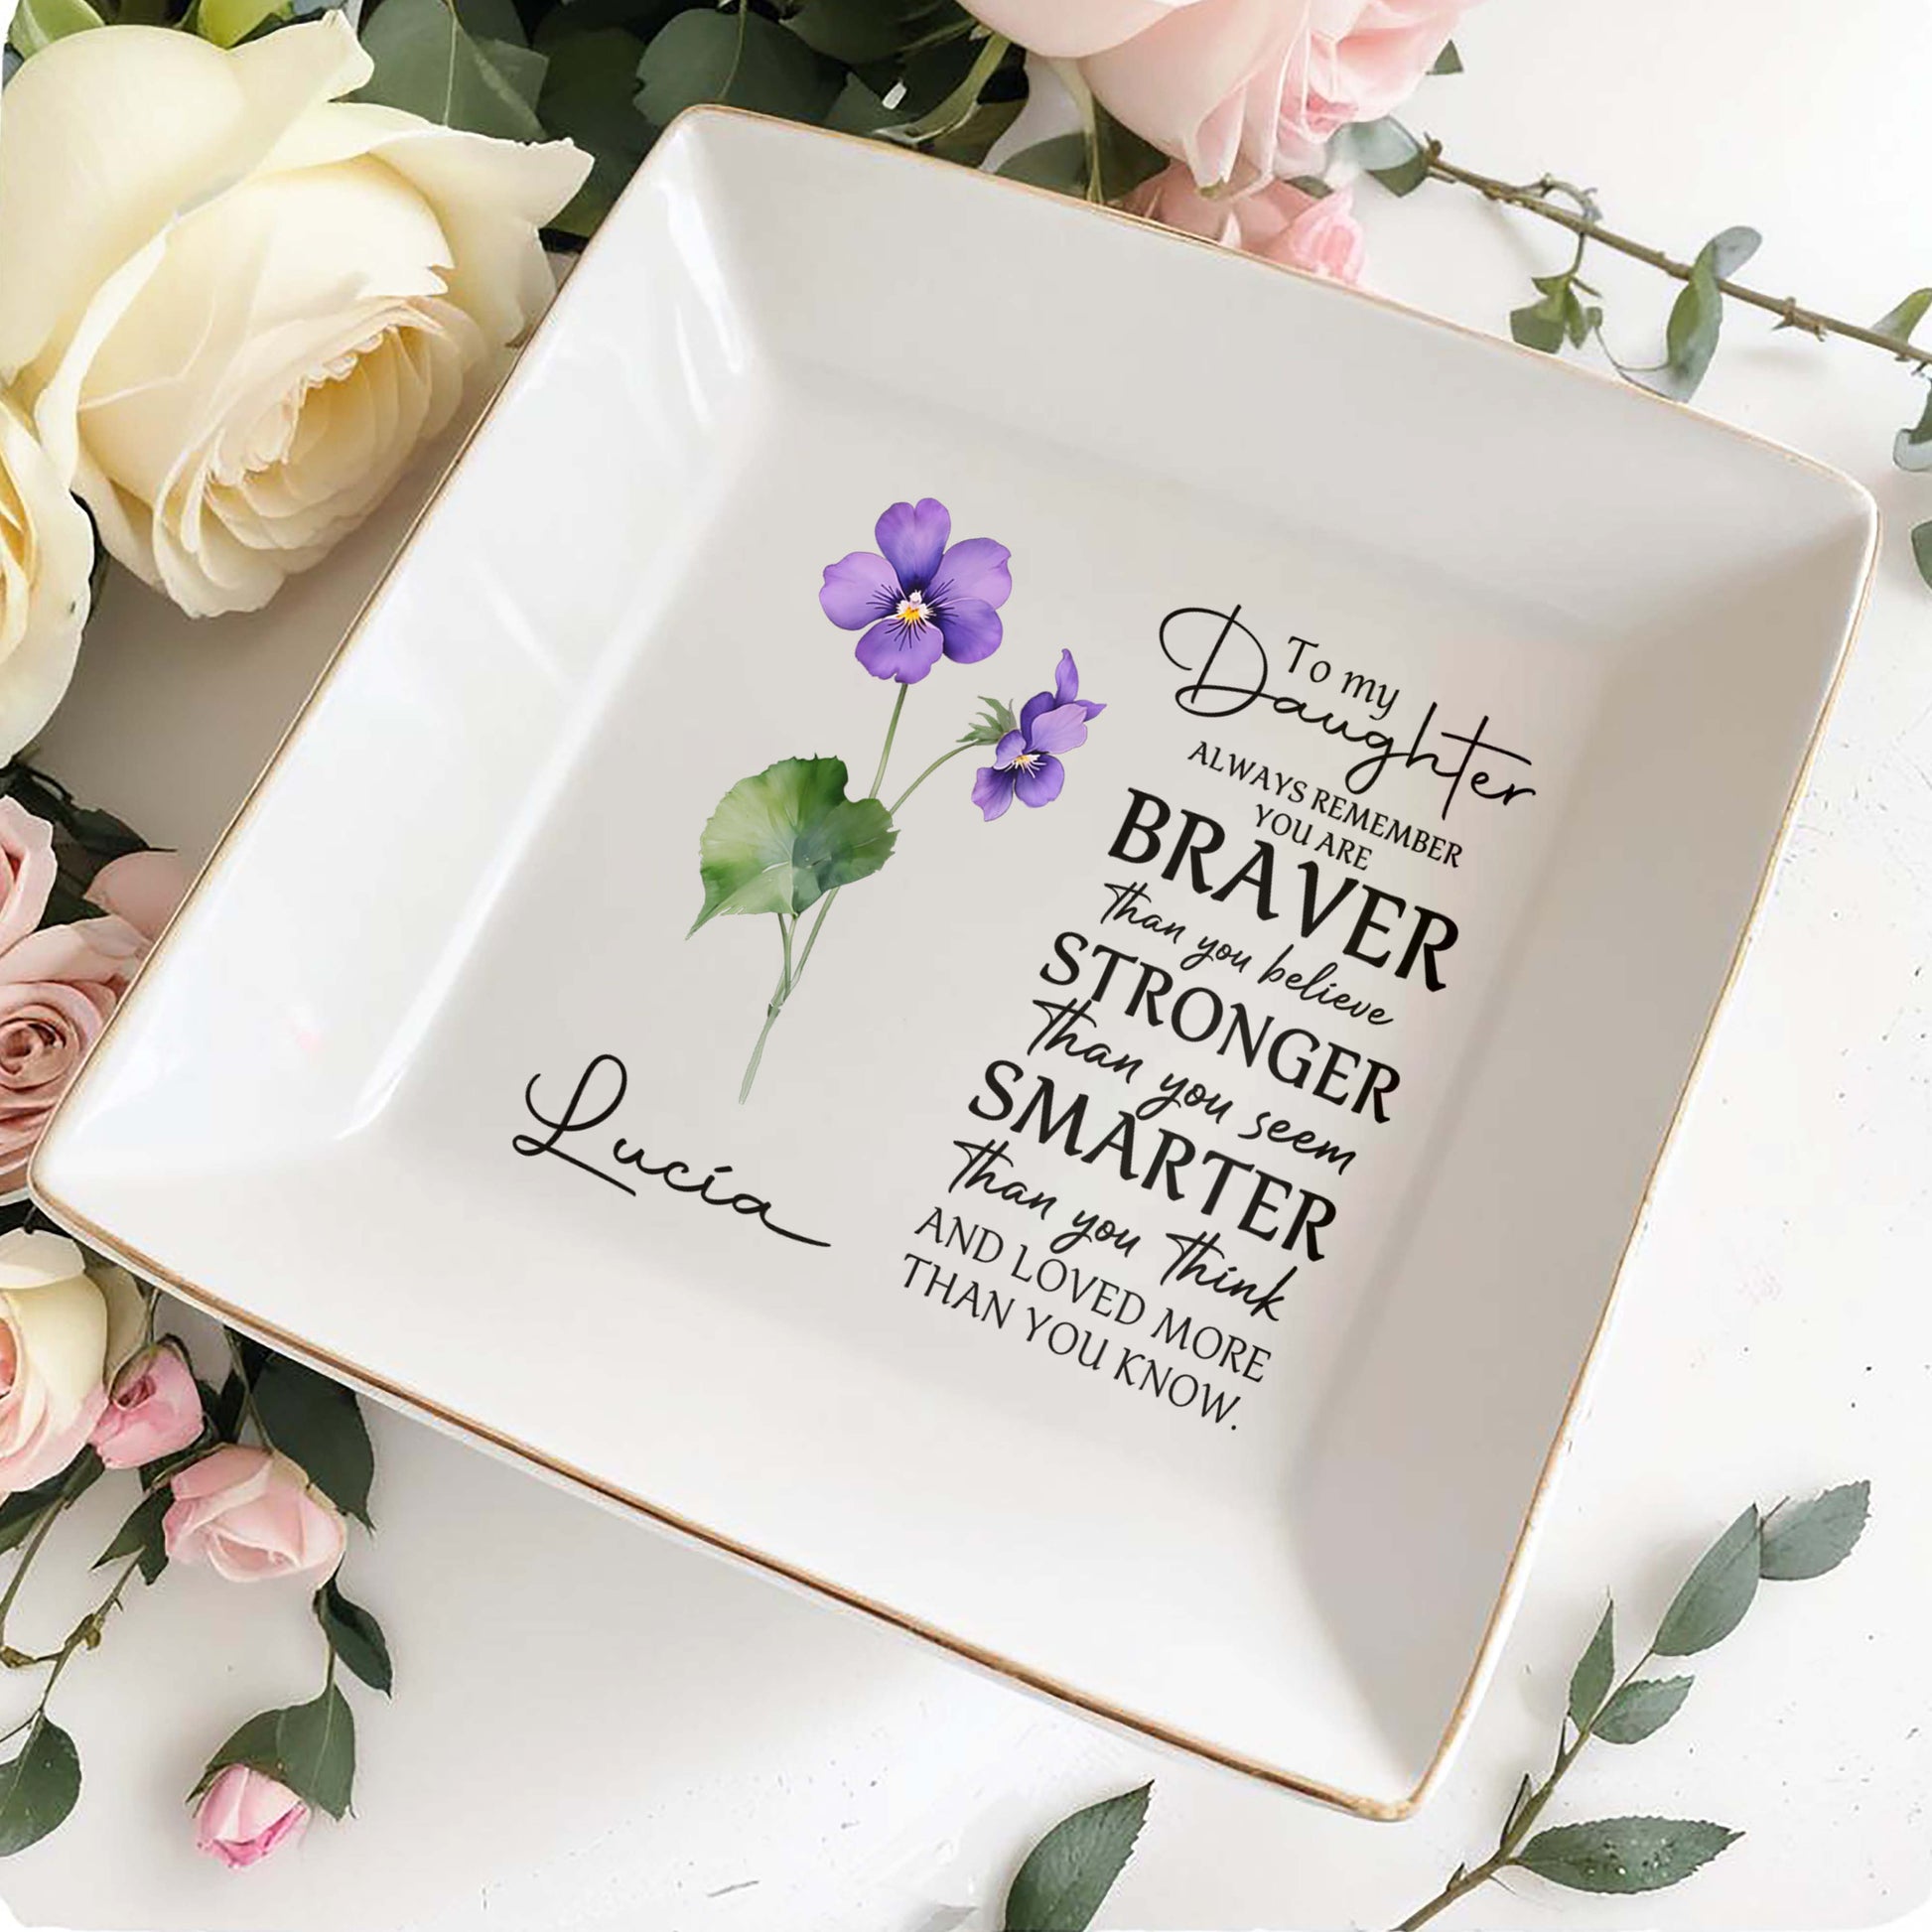 To my
Daughter
ALWAYS REMEMBER
YOU ARE
BRAVER
than you believe
STRONGER
than you seem
SMARTER
than you think
AND LOVED MORE
THAN YOU KNOW.
Lucia